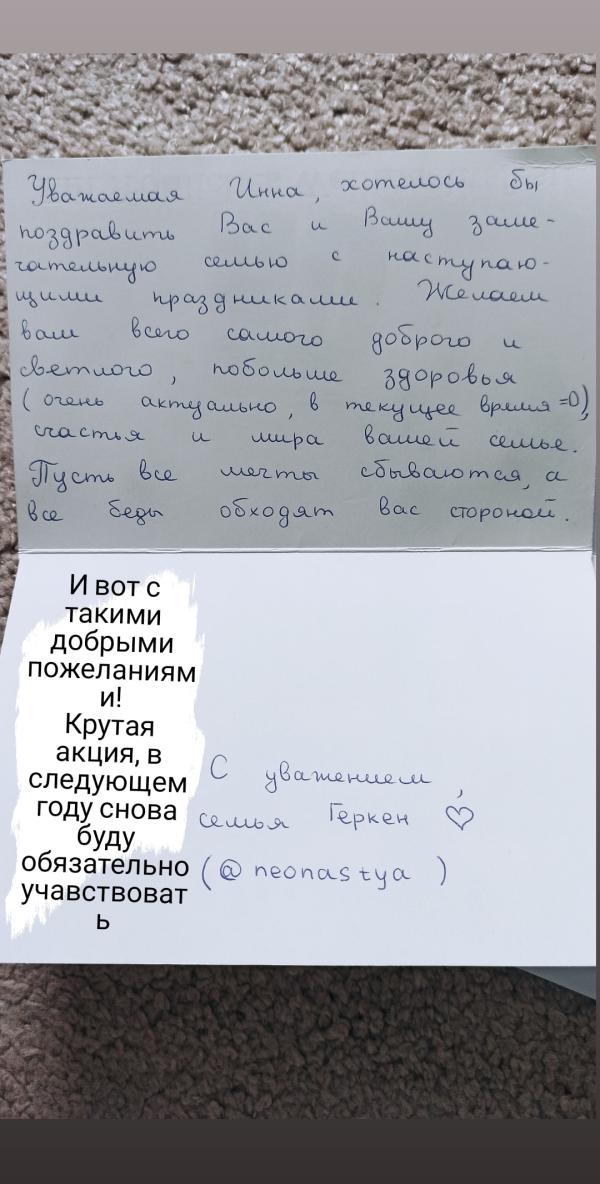 Уважаемая Инна, хотелось бы
поздравить Вас и Вашу заме-
чательную семью с наступаю-
щими праздниками. Желаем
вам всего самого доброго и
светлого, побольше здоровья
(очень актуально, в текущее время =0),
счастья и мира вашей семье.
Пусть все мечты сбываются, а
все беды обходят вас стороной.
И вот с
такими
добрыми
пожеланиям
и!
Крутая
акция, в
следующем
году снова
буду
обязательно
учавствоват
ь
С уважением,
семья Геркен ♡
(@neonastya)